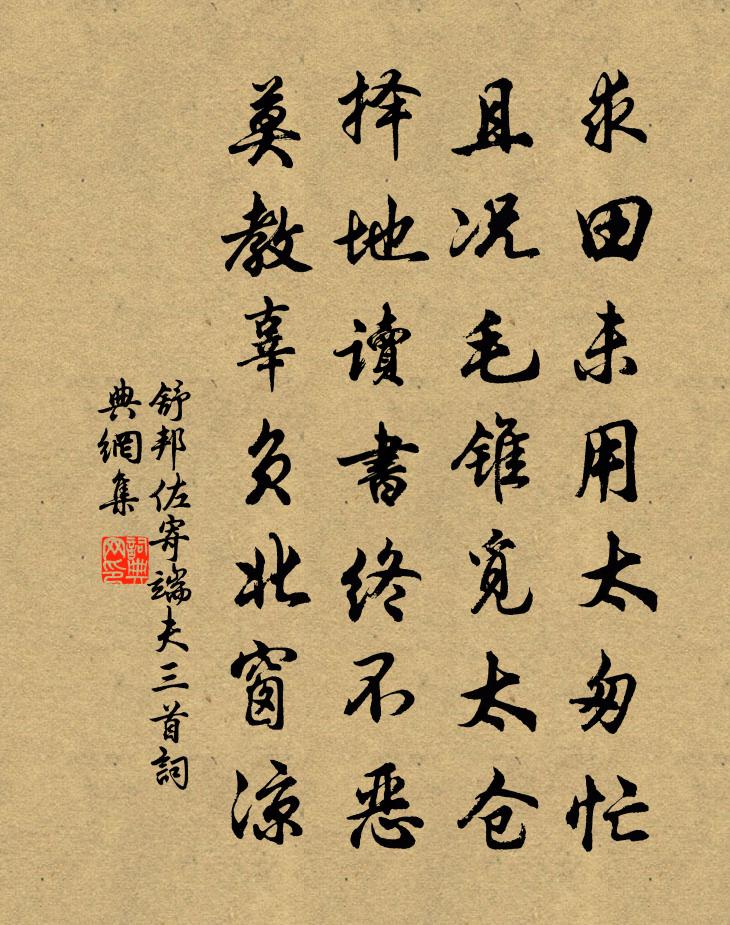 求田未用太匆忙
且况毛锥觅太仓
择地读书终不恶
莫教辜负北窗凉
舒邦佐寄端夫三首詞
典網集
詞典
网印